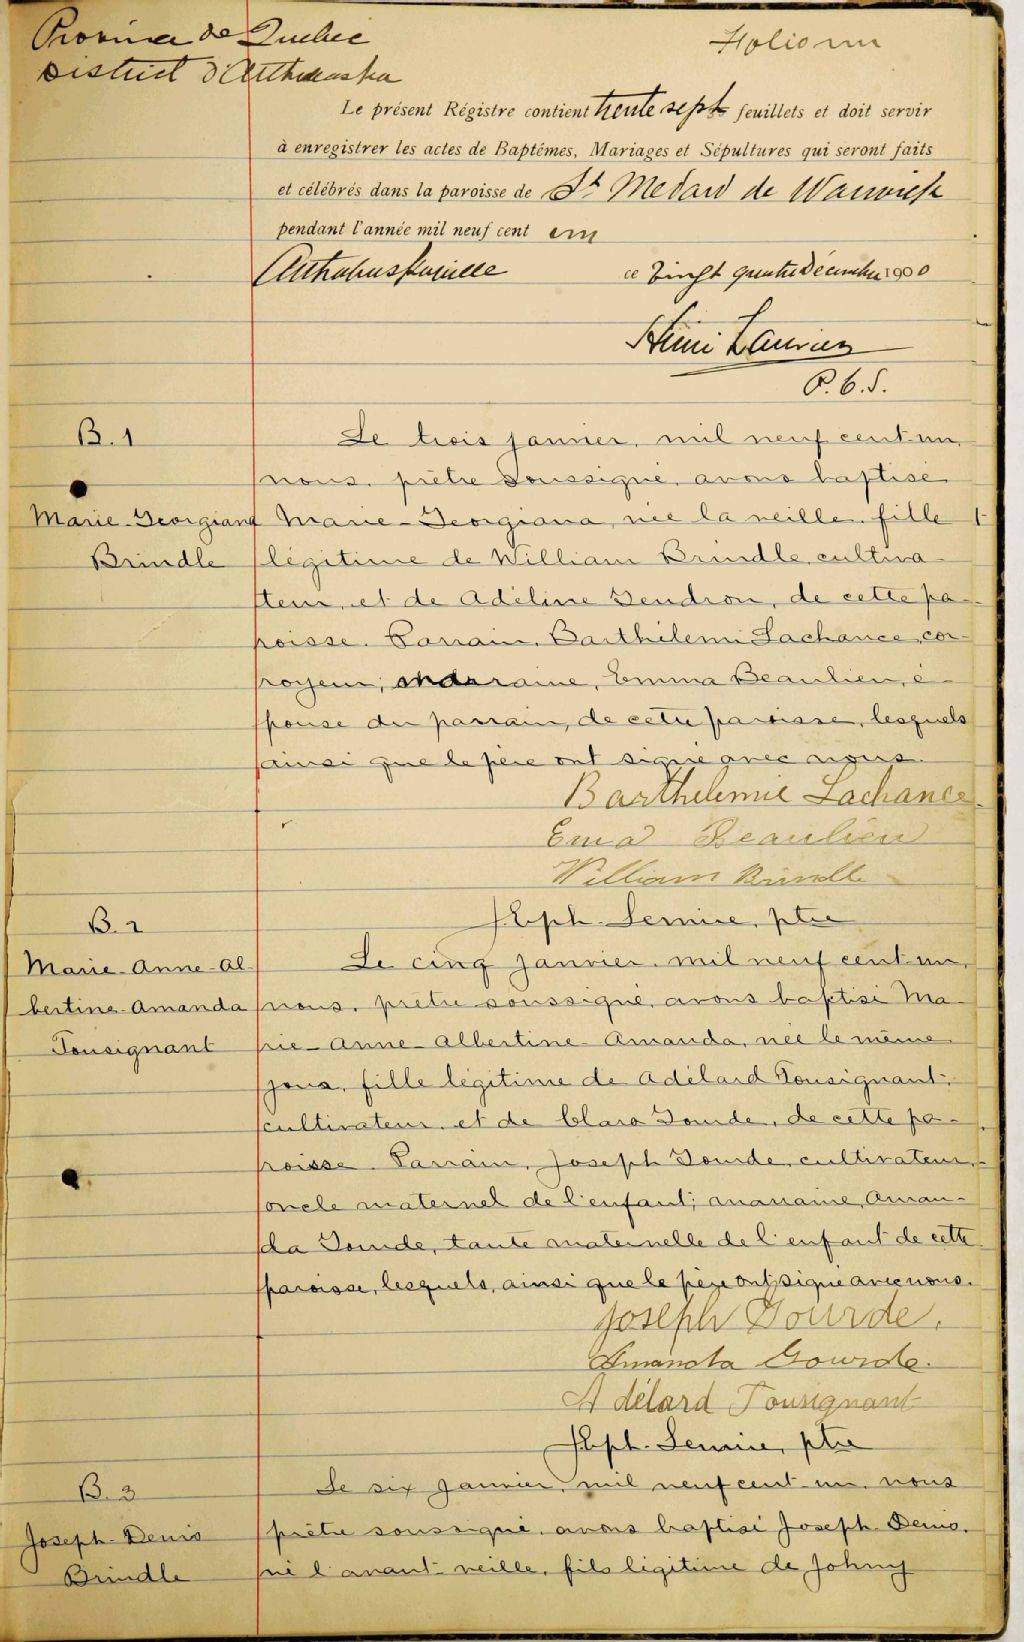 Province de Quebec
District d'Arthabaska
Folio un
Le présent Régistre contient trente sept feuillets et doit servir
à enregistrer les actes de Baptêmes, Mariages et Sépultures qui seront faits
et célébrés dans la paroisse de St Medard de Warwick
pendant l'année mil neuf cent un
Arthabaskaville ce Vingt quatre Décembre 1900
Laurier
P.C.S.
B. 1
Marie-Georgiana
Brindle
Le trois janvier, mil neuf cent-un,
nous, prêtre soussigné, avons baptisé
Marie-Georgiana, née la veille, fille
légitime de William Brindle, cultiva-
teur, et de Adéline Gendron, de cette pa-
roisse. Parrain, Barthélemi Lachance, cor-
royeur; marraine, Emma Beaulieu, é-
pouse du parrain, de cette paroisse, lesquels
ainsi que le père ont signé avec nous.
Barthelemie Lachance
Ema Beaulieu
William Brindle
J. Eph. Lemire, ptre
B. 2
Marie-Anne-Al-
bertine-Amanda
Tousignant
Le cinq janvier, mil neuf cent-un,
nous, prêtre soussigné, avons baptisé Ma-
rie-Anne-Albertine-Amanda, née le même
jour, fille légitime de Adélard Tousignant,
cultivateur, et de Clara Gourde, de cette pa-
roisse. Parrain, Joseph Gourde, cultivateur,
oncle maternel de l'enfant; marraine, Aman-
da Gourde, tante maternelle de l'enfant de cette
paroisse, lesquels, ainsi que le père ont signé avec nous.
Joseph Gourde.
Amanda Gourde.
Adélard Tousignant
J. Eph. Lemire, ptre
B. 3
Joseph-Denis
Brindle
Le six janvier, mil neuf cent-un, nous
prêtre soussigné, avons baptisé Joseph-Denis,
né l'avant-veille, fils légitime de Johny